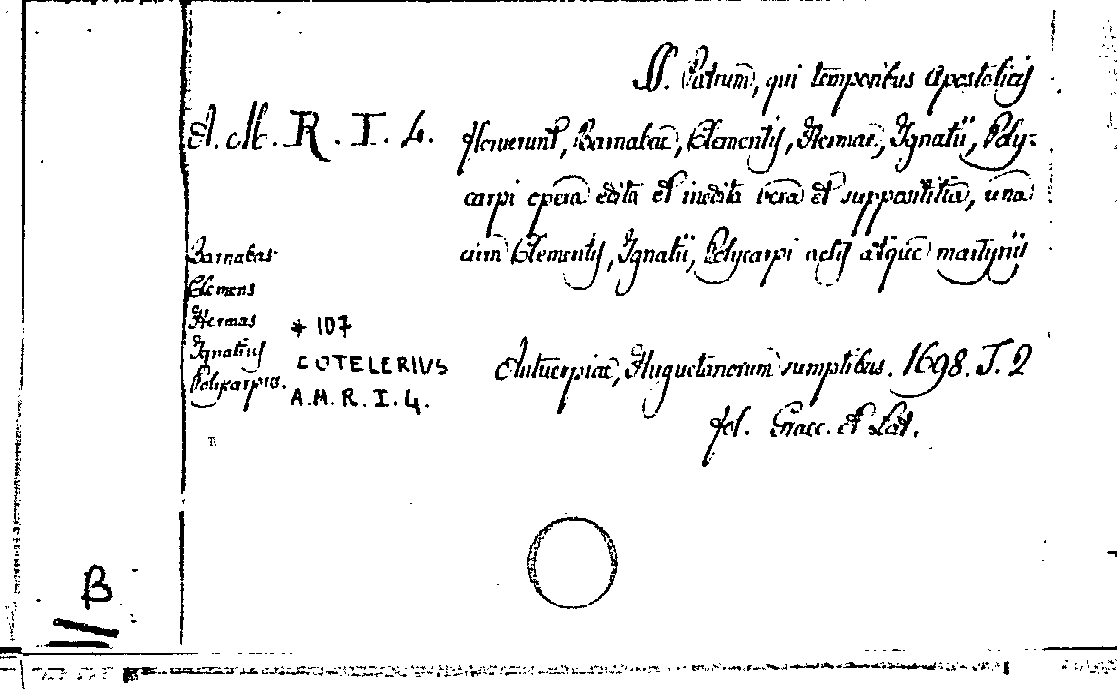 SS. Patrum, qui temporibus Apostolicis
A. M. R. I. 4.
floruerunt, Barnabae, Clementis, Hermae, Ignatii, Poly-
carpi opera edita et inedita vera et supposititia, una
cum Clementis, Ignatii, Polycarpi actis atque martyriis
Barnabas
Clemens
Hermas
Ignatius
Polycarpus.
* 107
COTELERIUS
A.M.R.I.4.
Antuerpiae, Huguetanorum sumptibus. 1698. T. 2
fol. Graec. et Lat.
B